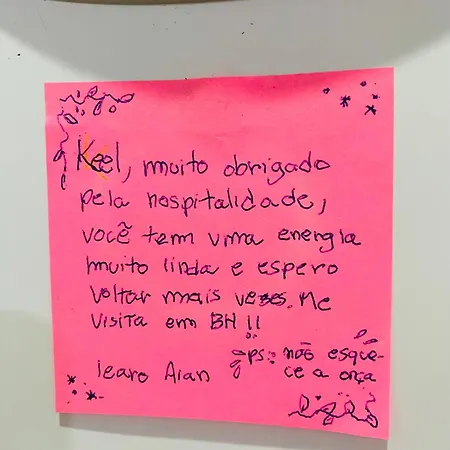 Keel, muito obrigado
pela hospitalidade,
você tem uma energia
muito linda e espero
voltar mais vezes. Me
visita em BH !!
ps: não esque-
ce a onça
Icaro Alan